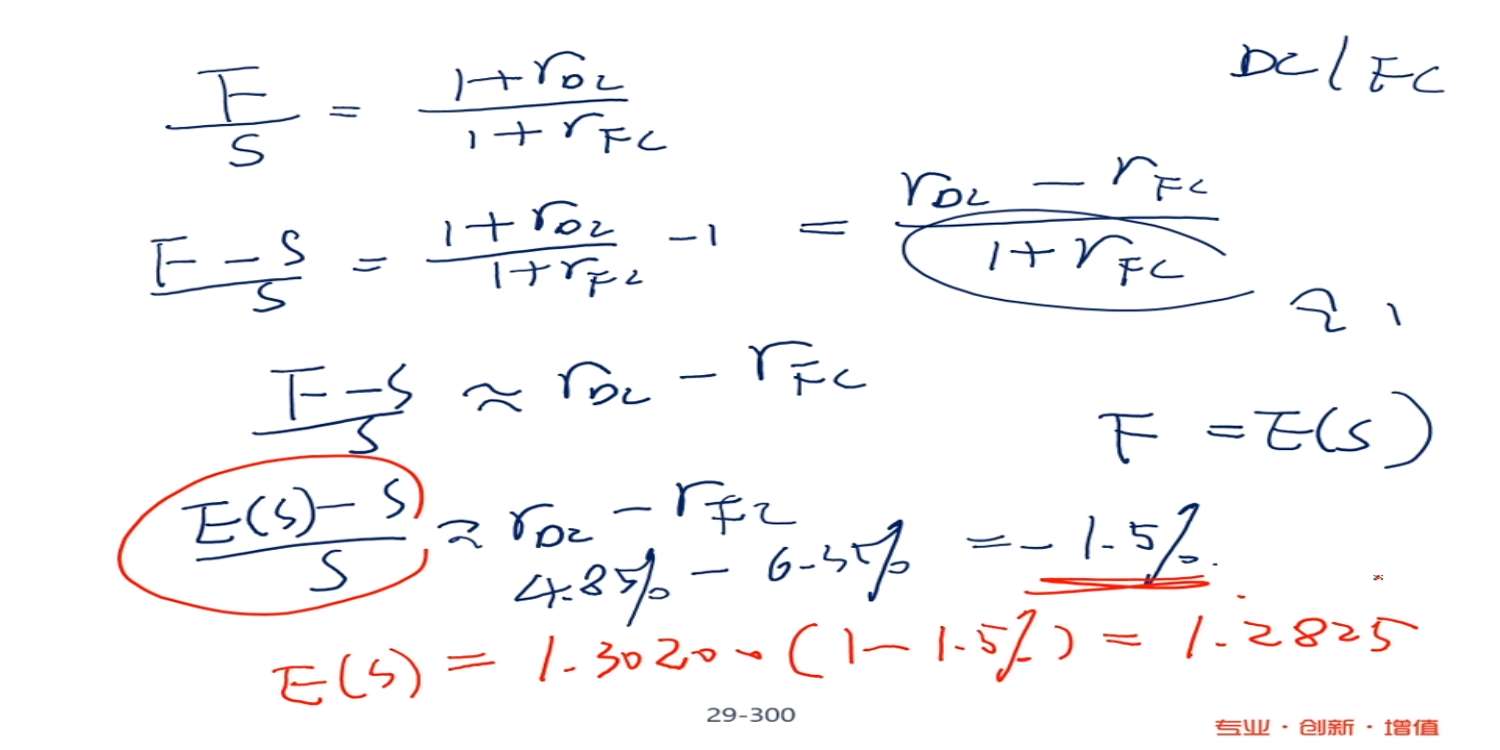 DC/FC
F/S = (1+r_DC)/(1+r_FC)
(F-S)/S = (1+r_DC)/(1+r_FC) -1 = (r_DC - r_FC)/(1+r_FC) ≈ 1
(F-S)/S ≈ r_DC - r_FC
F = E(S)
(E(S)-S)/S ≈ r_DC - r_FC
4.85% - 6.35% = -1.5%.
E(S) = 1.3020·(1-1.5%) = 1.2825
29-300
专业·创新·增值